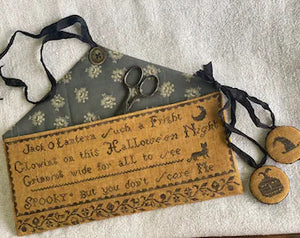 Jack O Lantern Such a Fright
Glowing on this Halloween Night
Grinning wide for all to see
SPOOKY: But you don't scare Me